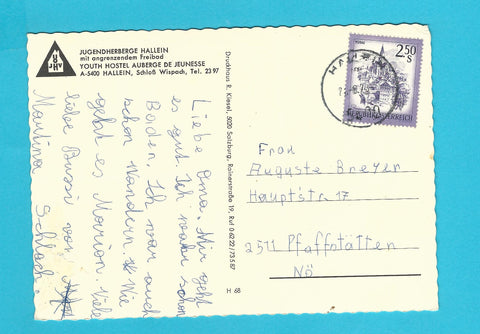 JUGENDHERBERGE HALLEIN
mit angrenzendem Freibad
YOUTH HOSTEL AUBERGE DE JEUNESSE
A-5400 HALLEIN, Schloß Wispach, Tel. 23 97
JHV
Liebe Oma. Mir geht
es gut. Ich war schon
Baden. Ich war auch
schon Wandern. Wie
geht es Marion. Viele
liebe Bussi von
Martina Schlach.
Druckhaus R. Kiesel, 5020 Salzburg, Rainerstraße 19, Ruf 0 62 22 / 73 5 87
H 68
HALLEIN
2.50
S
REPUBLIK ÖSTERREICH
Frau
Auguste Breyer
Hauptstr 17
2511 Pfaffstätten
NÖ